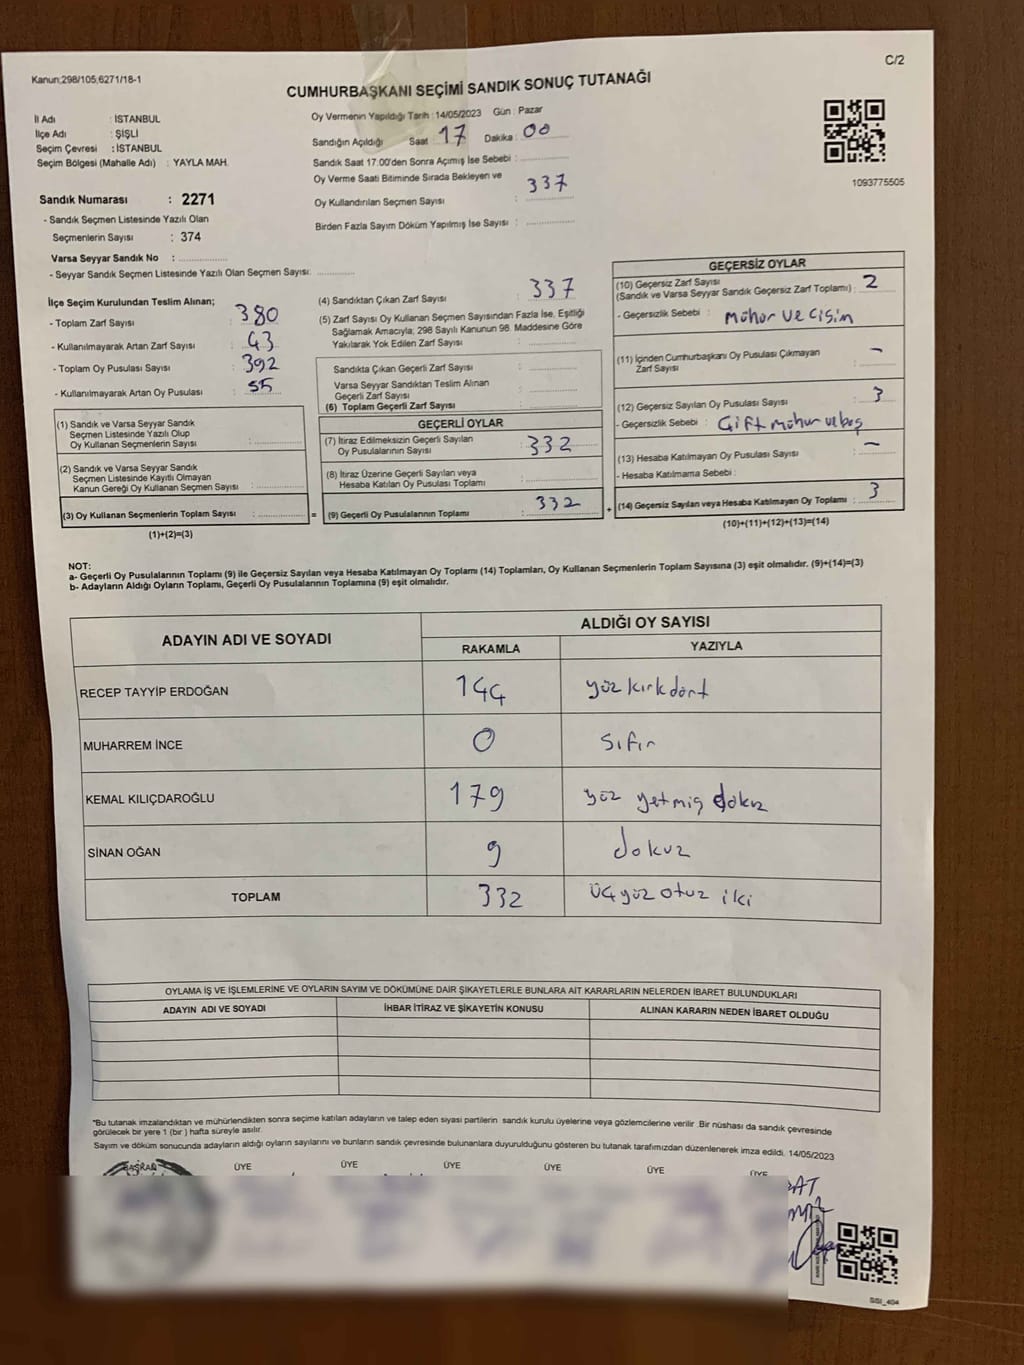 Kanun;298/105,6271/18-1
C/2
CUMHURBAŞKANI SEÇİMİ SANDIK SONUÇ TUTANAĞI
İl Adı : İSTANBUL
İlçe Adı : ŞİŞLİ
Seçim Çevresi : İSTANBUL
Seçim Bölgesi (Mahalle Adı) : YAYLA MAH.
Sandık Numarası : 2271
- Sandık Seçmen Listesinde Yazılı Olan
Seçmenlerin Sayısı : 374
Varsa Seyyar Sandık No :
- Seyyar Sandık Seçmen Listesinde Yazılı Olan Seçmen Sayısı:
Oy Vermenin Yapıldığı Tarih : 14/05/2023 Gün : Pazar
Sandığın Açıldığı Saat : 17 Dakika : 00
Sandık Saat 17:00'den Sonra Açımış İse Sebebi :
Oy Verme Saati Bitiminde Sırada Bekleyen ve
Oy Kullandırılan Seçmen Sayısı : 337
Birden Fazla Sayım Döküm Yapılmış İse Sayısı :
1093775505
İlçe Seçim Kurulundan Teslim Alınan;
- Toplam Zarf Sayısı : 380
- Kullanılmayarak Artan Zarf Sayısı : 43
- Toplam Oy Pusulası : 392
- Kullanılmayarak Artan Oy Pusulası : 55
(1) Sandık ve Varsa Seyyar Sandık
Seçmen Listesinde Yazılı Olup
Oy Kullanan Seçmenlerin Sayısı :
(2) Sandık ve Varsa Seyyar Sandık
Seçmen Listesinde Kayıtlı Olmayan
Kanun Gereği Oy Kullanan Seçmen Sayısı :
(3) Oy Kullanan Seçmenlerin Toplam Sayısı :
(1)+(2)=(3)
(4) Sandıktan Çıkan Zarf Sayısı : 337
(5) Zarf Sayısı Oy Kullanan Seçmen Sayısından Fazla İse, Eşitliği
Sağlamak Amacıyla; 298 Sayılı Kanunun 98. Maddesine Göre
Yakılarak Yok Edilen Zarf Sayısı :
Sandıkta Çıkan Geçerli Zarf Sayısı :
Varsa Seyyar Sandıktan Teslim Alınan
Geçerli Zarf Sayısı :
(6) Toplam Geçerli Zarf Sayısı :
=
GEÇERLİ OYLAR
(7) İtiraz Edilmeksizin Geçerli Sayılan
Oy Pusulasının Sayısı : 332
(8) İtiraz Üzerine Geçerli Sayılan veya
Hesaba Katılan Oy Pusulası Toplamı :
(9) Geçerli Oy Pusulalarının Toplamı : 332
+
GEÇERSİZ OYLAR
(10) Geçersiz Zarf Sayısı
(Sandık ve Varsa Seyyar Sandık Geçersiz Zarf Toplamı) : 2
- Geçersizlik Sebebi : Mühür ve Cisim
(11) İçinden Cumhurbaşkanı Oy Pusulası Çıkmayan
Zarf Sayısı : -
(12) Geçersiz Sayılan Oy Pusulası Sayısı : 3
- Geçersizlik Sebebi : Çift mühür ve boş
(13) Hesaba Katılmayan Oy Pusulası Sayısı : -
- Hesaba Katılmama Sebebi :
(14) Geçersiz Sayılan veya Hesaba Katılmayan Oy Toplamı : 3
(10)+(11)+(12)+(13)=(14)
NOT:
a- Geçerli Oy Pusulalarının Toplamı (9) ile Geçersiz Sayılan veya Hesaba Katılmayan Oy Toplamı (14) Toplamları, Oy Kullanan Seçmenlerin Toplam Sayısına (3) eşit olmalıdır. (9)+(14)=(3)
b- Adayların Aldığı Oyların Toplamı, Geçerli Oy Pusulalarının Toplamına (9) eşit olmalıdır.
ADAYIN ADI VE SOYADI
ALDIĞI OY SAYISI
RAKAMLA YAZIYLA
RECEP TAYYİP ERDOĞAN 144 yüz kırk dört
MUHARREM İNCE 0 sıfır
KEMAL KILIÇDAROĞLU 179 yüz yetmiş dokuz
SİNAN OĞAN 9 dokuz
TOPLAM 332 üç yüz otuz iki
OYLAMA İŞ VE İŞLEMLERİNE VE OYLARIN SAYIM VE DÖKÜMÜNE DAİR ŞİKAYETLERLE BUNLARA AİT KARARLARIN NELERDEN İBARET BULUNDUKLARI
ADAYIN ADI VE SOYADI İHBAR İTİRAZ VE ŞİKAYETİN KONUSU ALINAN KARARIN NEDEN İBARET OLDUĞU
*Bu tutanak imzalandıktan ve mühürlendikten sonra seçime katılan adayların ve talep eden siyasi partilerin sandık kurulu üyelerine veya gözlemcilerine verilir. Bir nüshası da sandık çevresinde
görülecek bir yere 1 (bir ) hafta süreyle asılır.
Sayım ve döküm sonucunda adayların aldığı oyların sayılarını ve bunların sandık çevresinde bulunanlara duyurulduğunu gösteren bu tutanak tarafımızdan düzenlenerek imza edildi. 14/05/2023
BAŞKAN ÜYE ÜYE ÜYE ÜYE ÜYE ÜYE
SSI_404